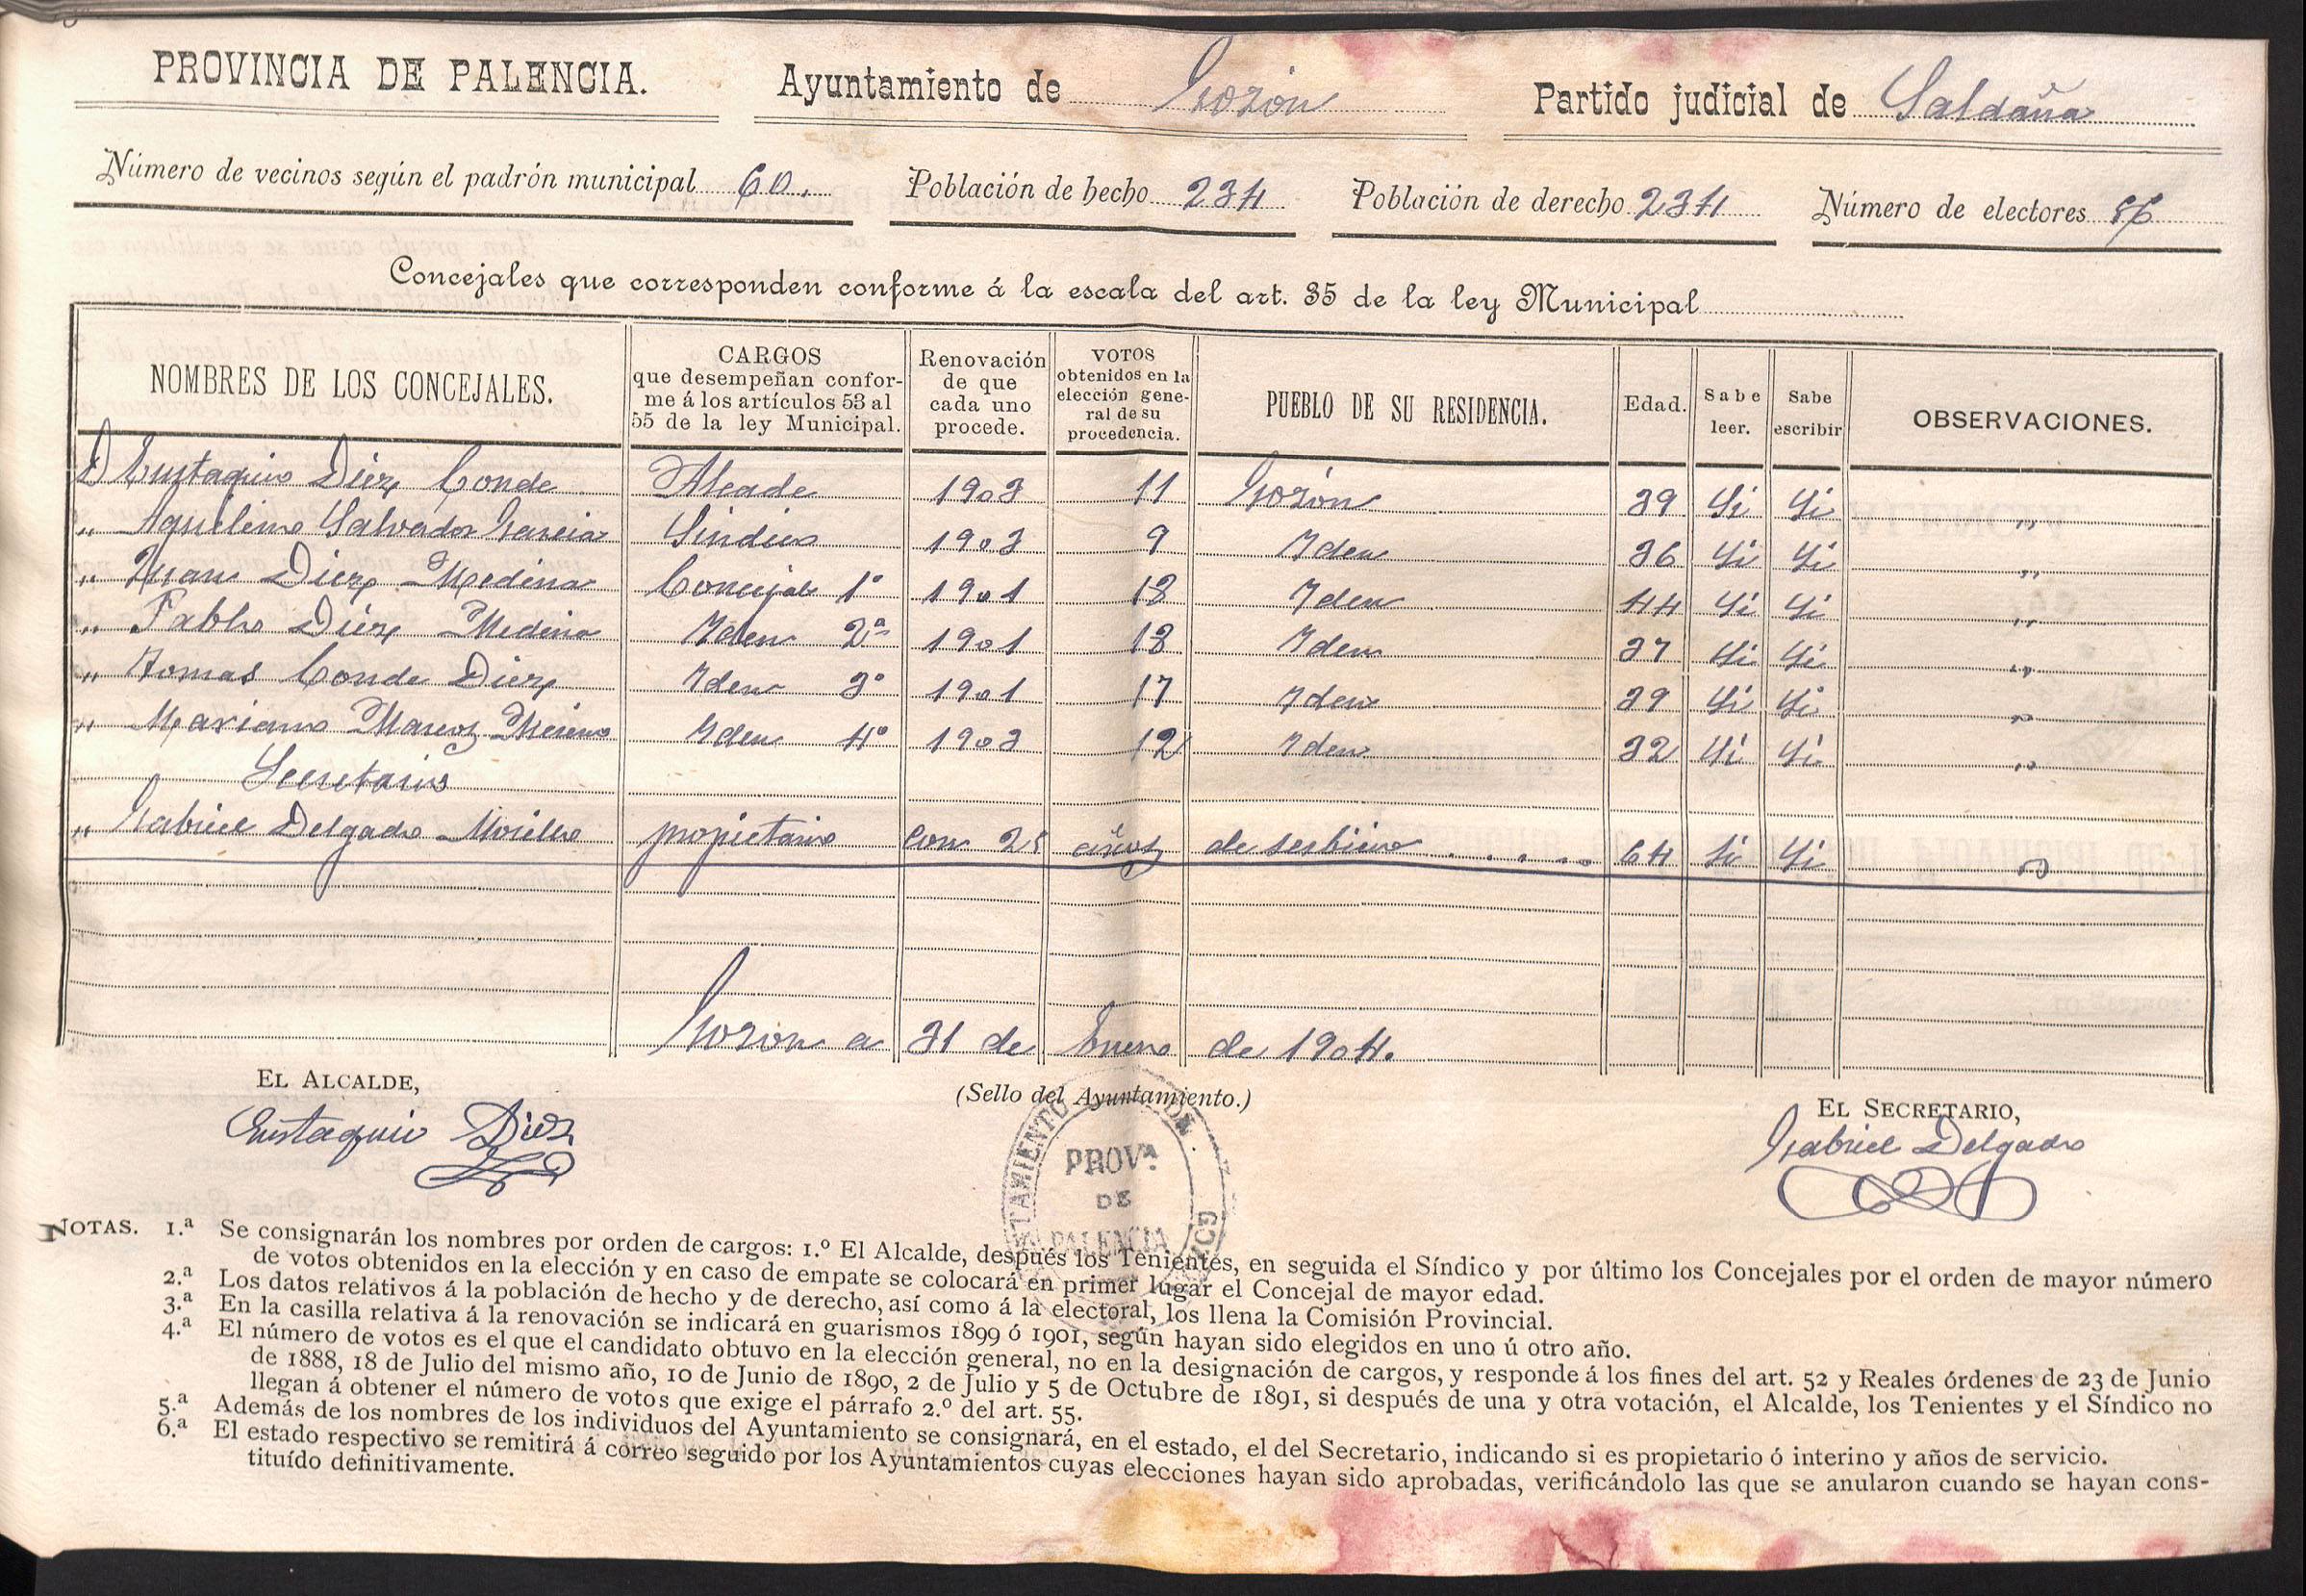 PROVINCIA DE PALENCIA. Ayuntamiento de Gozón Partido judicial de Saldaña
Número de vecinos según el padrón municipal 60. Población de hecho 234 Población de derecho 234 Número de electores 56
Concejales que corresponden conforme á la escala del art. 35 de la ley Municipal
NOMBRES DE LOS CONCEJALES. CARGOS que desempeñan confor- me á los artículos 53 al 55 de la ley Municipal. Renovación de que cada uno procede. VOTOS obtenidos en la elección gene- ral de su procedencia. PUEBLO DE SU RESIDENCIA. Edad. Sabe leer. Sabe escribir OBSERVACIONES.
D Eustaquio Diez Conde Alcade 1903 11 Gozón 39 Si Si "
" Aquelino Salvador Garcia Sindico 1903 9 Iden 36 Si Si "
" Juan Diez Medina Concejal 1º 1901 18 Iden 44 Si Si "
" Pablo Diez Medina Iden 2º 1901 18 Iden 37 Si Si "
" Tomas Conde Diez Iden 3º 1901 17 Iden 39 Si Si "
" Mariano Marcos Merino Iden 4º 1903 12 Iden 32 Si Si "
Secretario
" Gabriel Delgado Morillo propietario con 25 años de serbicio 64 Si Si "
Gozon a 31 de Enero de 1904.
EL ALCALDE, (Sello del Ayuntamiento.) EL SECRETARIO,
Eustaquio Diez Gabriel Delgado
AYUNTAMIENTO DE GOZON
PROVª.
DE
PALENCIA
NOTAS. 1.ª Se consignarán los nombres por orden de cargos: 1.º El Alcalde, después los Tenientes, en seguida el Síndico y por último los Concejales por el orden de mayor número
de votos obtenidos en la elección y en caso de empate se colocará en primer lugar el Concejal de mayor edad.
2.ª Los datos relativos á la población de hecho y de derecho, así como á la electoral, los llena la Comisión Provincial.
3.ª En la casilla relativa á la renovación se indicará en guarismos 1899 ó 1901, según hayan sido elegidos en uno ú otro año.
4.ª El número de votos es el que el candidato obtuvo en la elección general, no en la designación de cargos, y responde á los fines del art. 52 y Reales órdenes de 23 de Junio
de 1888, 18 de Julio del mismo año, 10 de Junio de 1890, 2 de Julio y 5 de Octubre de 1891, si después de una y otra votación, el Alcalde, los Tenientes y el Síndico no
llegan á obtener el número de votos que exige el párrafo 2.º del art. 55.
5.ª Además de los nombres de los individuos del Ayuntamiento se consignará, en el estado, el del Secretario, indicando si es propietario ó interino y años de servicio.
6.ª El estado respectivo se remitirá á correo seguido por los Ayuntamientos cuyas elecciones hayan sido aprobadas, verificándolo las que se anularon cuando se hayan cons-
tituído definitivamente.